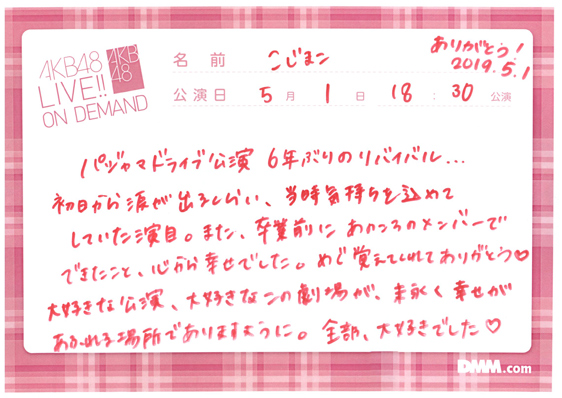 AKB48
LIVE!!
ON DEMAND
AKB
48
名前 こじまこ
ありがとう!
2019.5.1
公演日 5月 1日 18:30 公演
パジャマドライブ公演 6年ぶりのリバイバル...
初日から涙が出るくらい、当時気持ちを込めて
していた演目。また、卒業前に あのころのメンバーで
できたこと、心から幸せでした。めど覚えてくれてありがとう♡
大好きな公演、大好きなこの劇場が、末永く幸せが
あふれる場所でありますように。全部、大好きでした♡
DMM.com